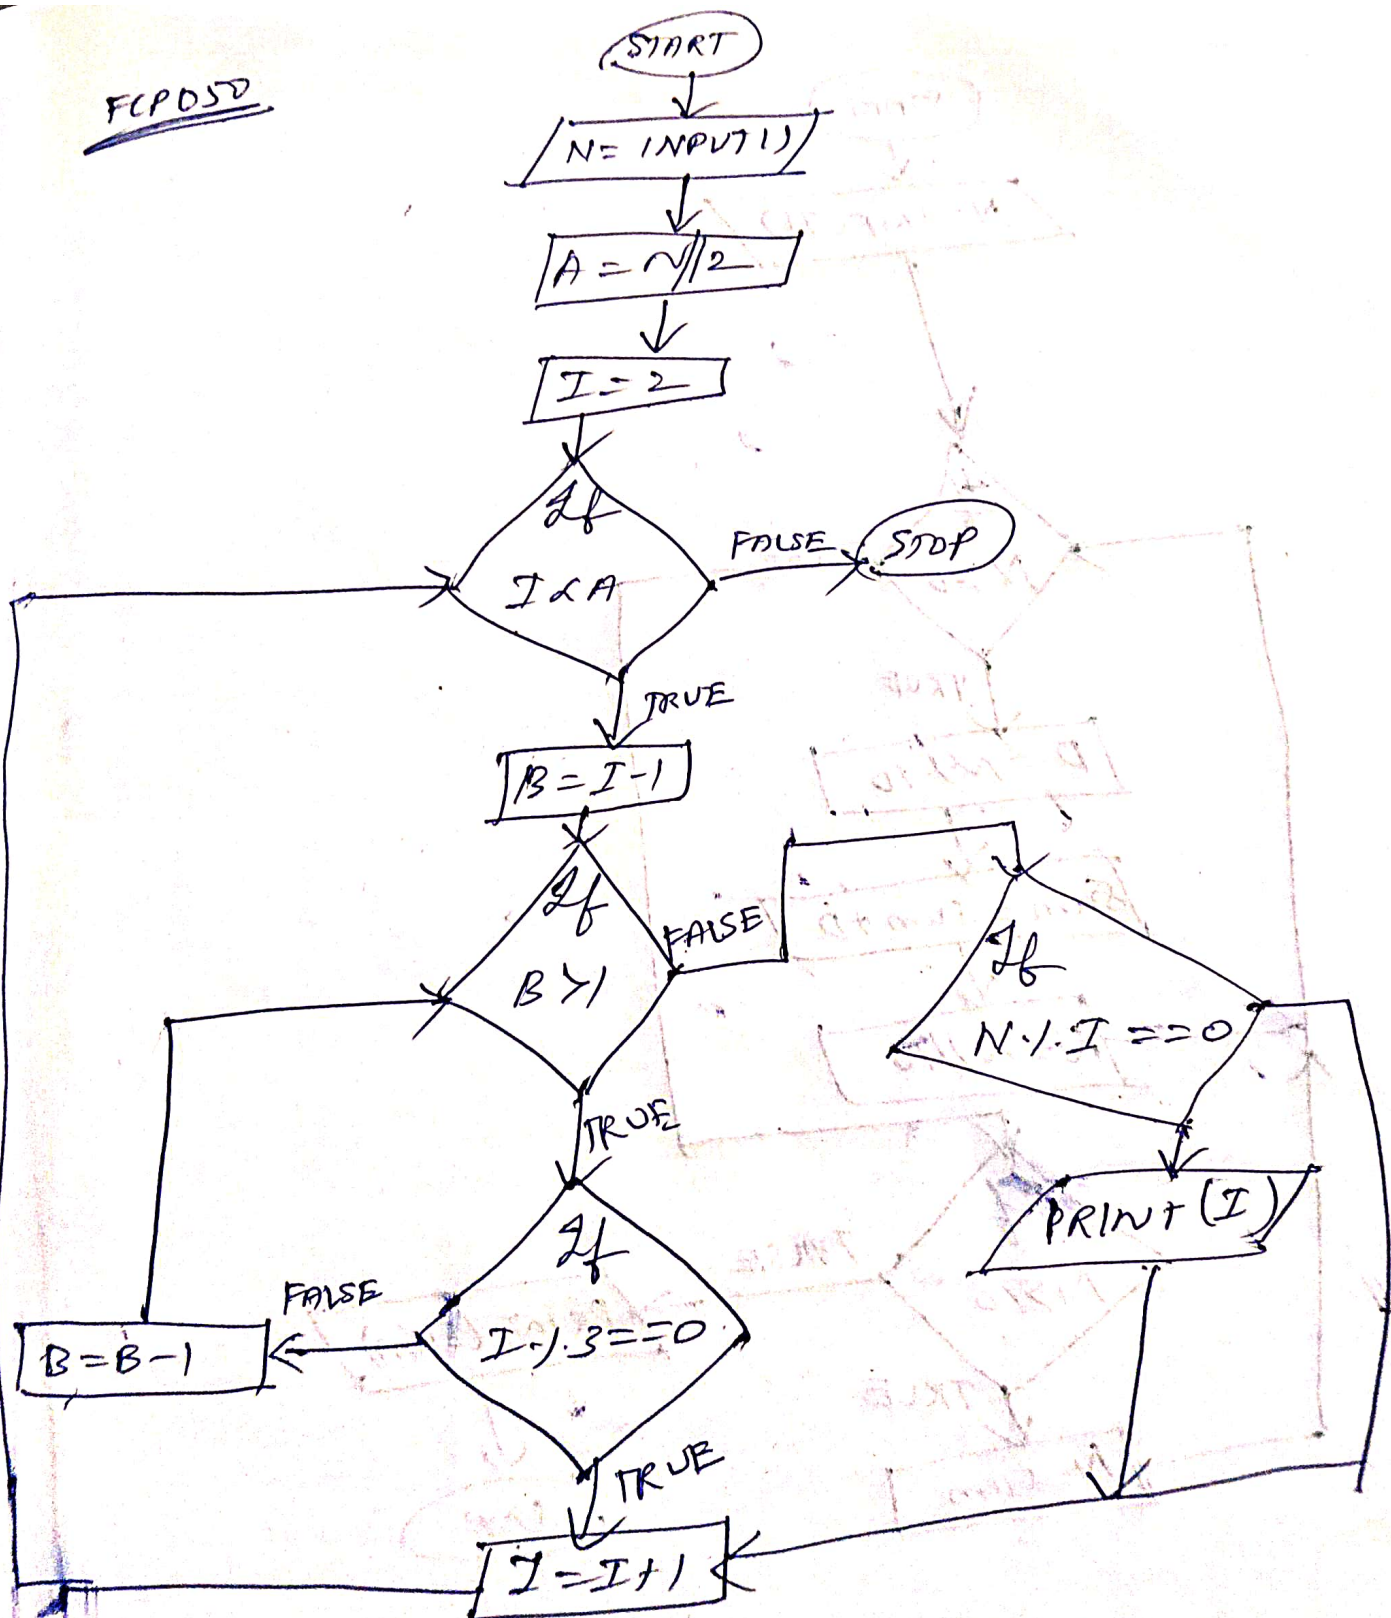 START
FCP050
N= INPUT()
A = N//2
I = 2
If
I < A
FALSE
STOP
TRUE
B = I-1
If
B >1
FALSE
If
N % I ==0
TRUE
PRINT (I)
If
I % 3==0
FALSE
B=B-1
TRUE
I =I+1